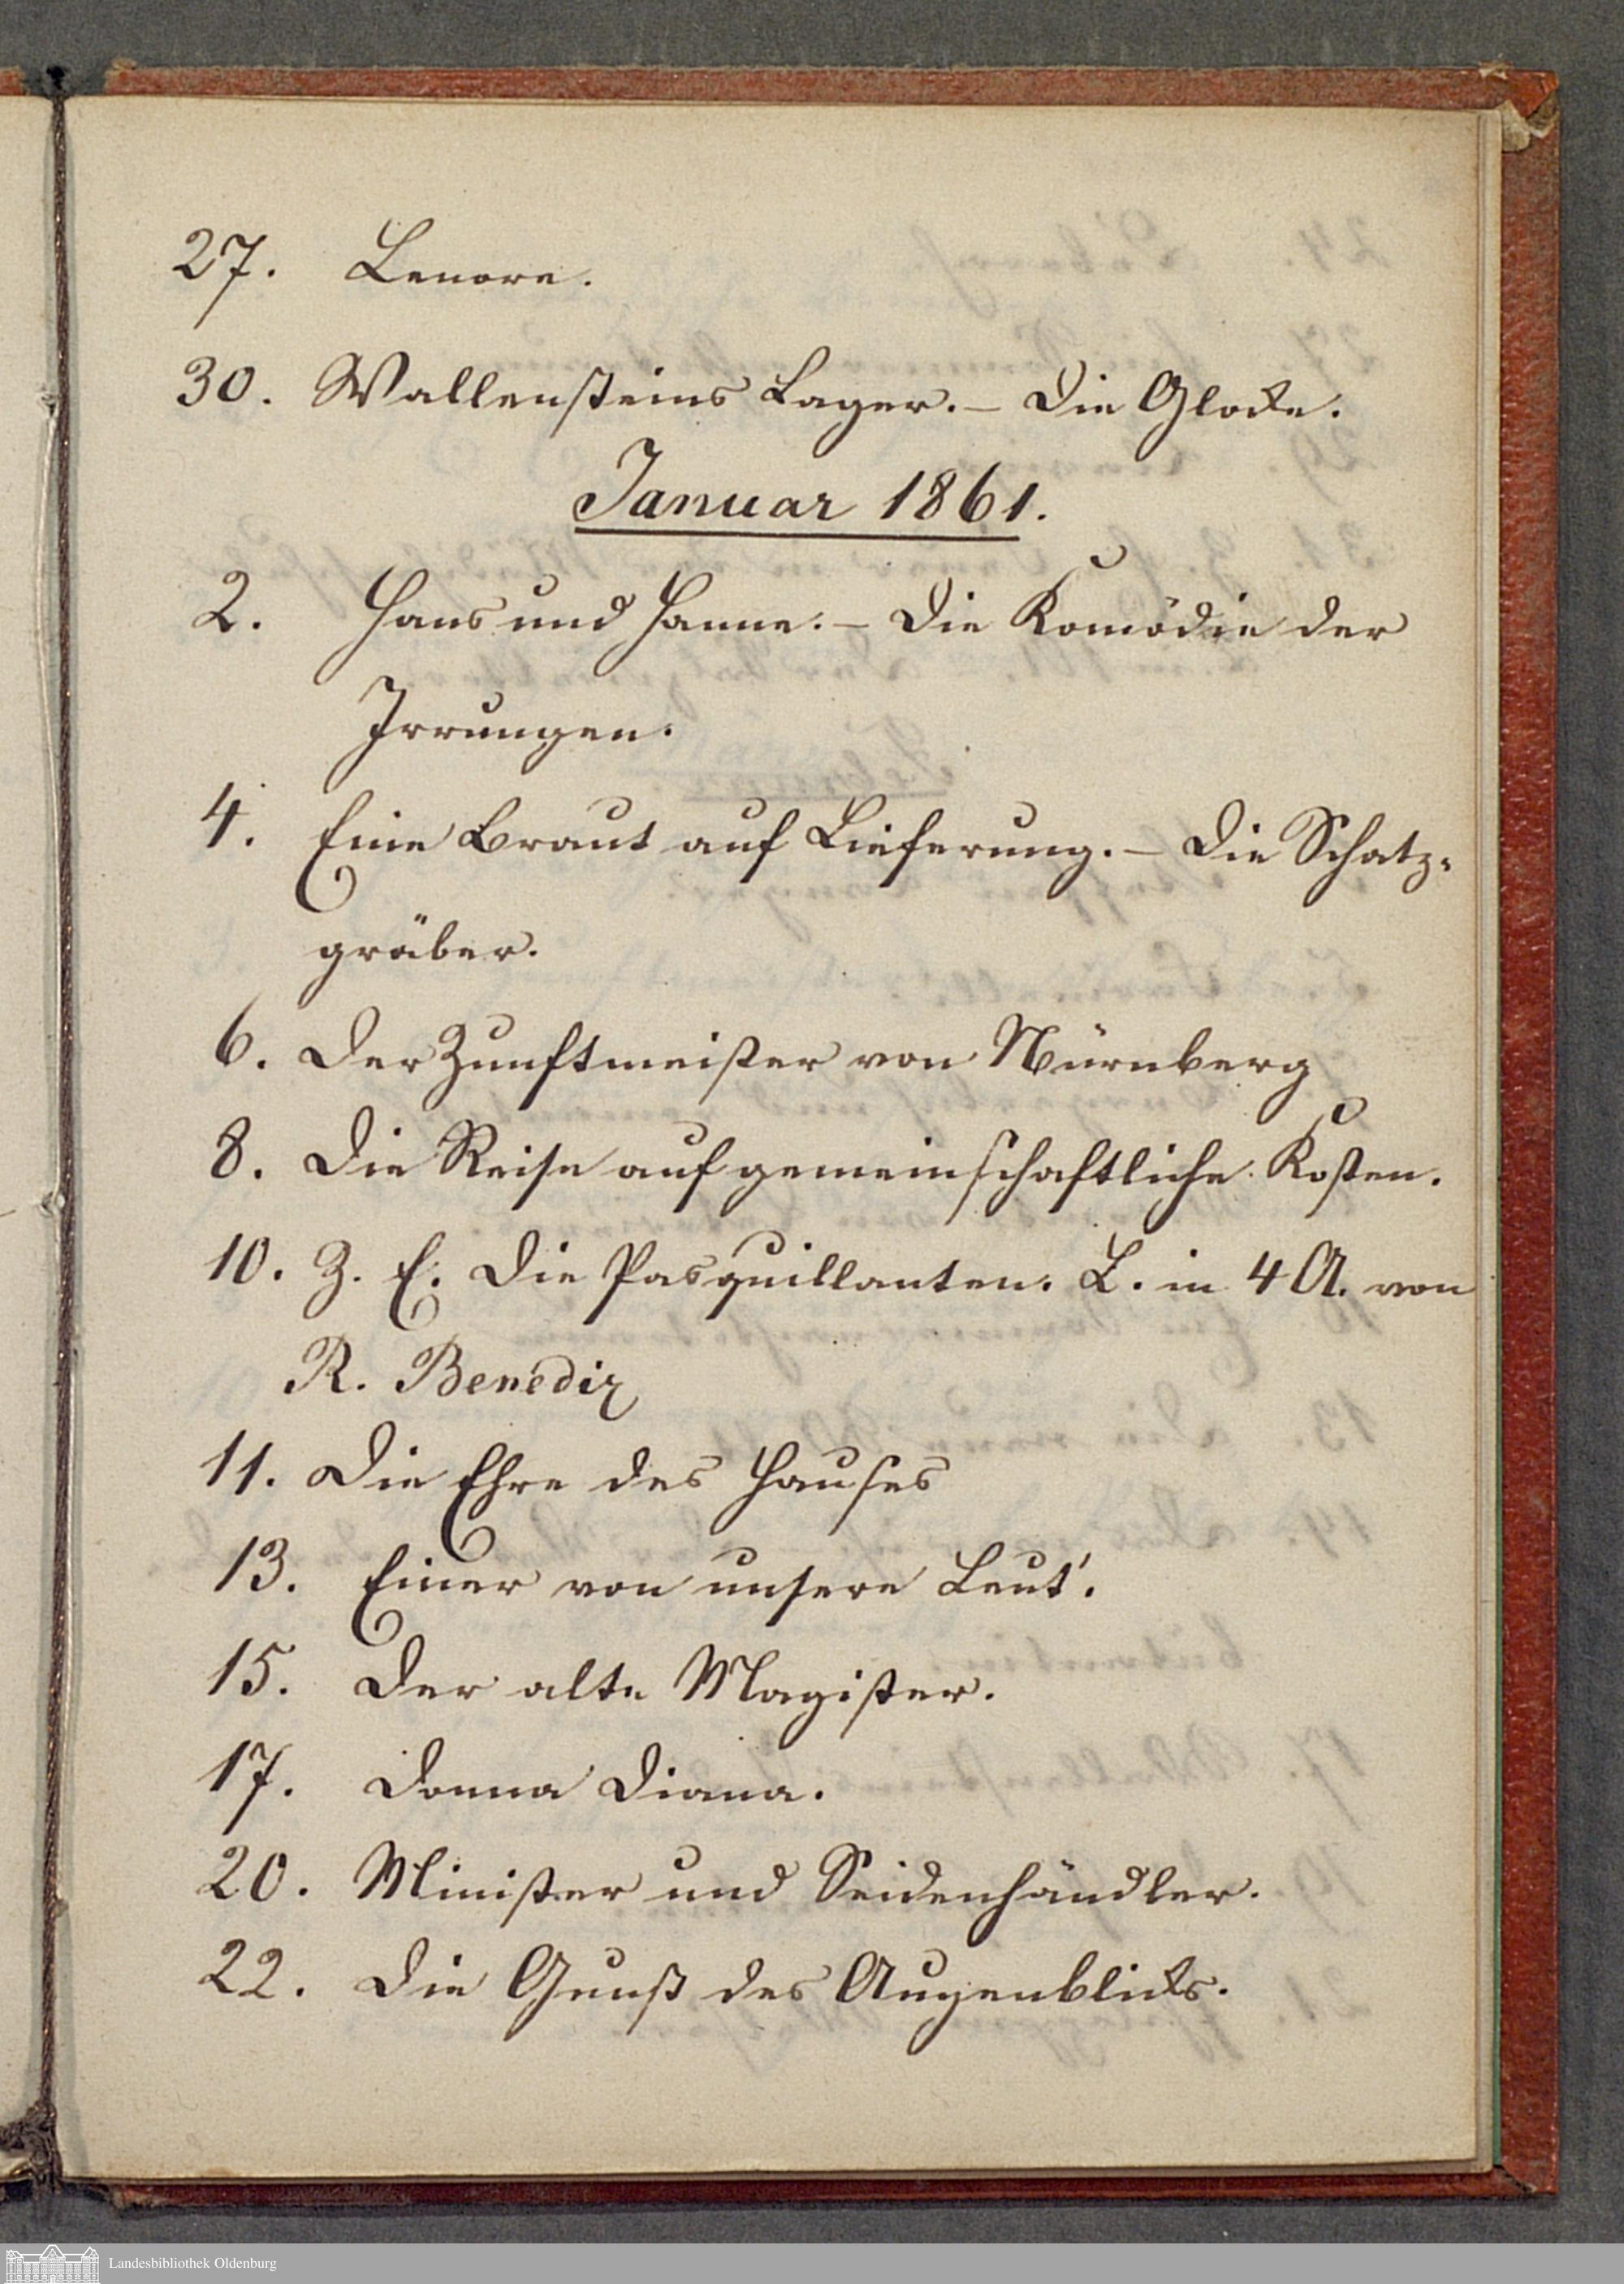 27. Lenore.
30. Wallensteins Lager. – Die Glocke.
Januar 1861.
2. Hans und Hanne. – Die Komödie der
Irrungen.
4. Eine Braut auf Lieferung. – Die Schatz-
gräber.
6. Der Zunftmeister von Nürnberg
8. Die Reise auf gemeinschaftliche Kosten.
10. Z. E. Die Pasquillanten. L. in 4 A. von
R. Benedix
11. Die Ehre des Hauses
13. Einer von unsere Leut'.
15. Der alte Magister.
17. Donna Diana.
20. Minister und Seidenhändler.
22. Die Gunst des Augenblicks.
Landesbibliothek Oldenburg